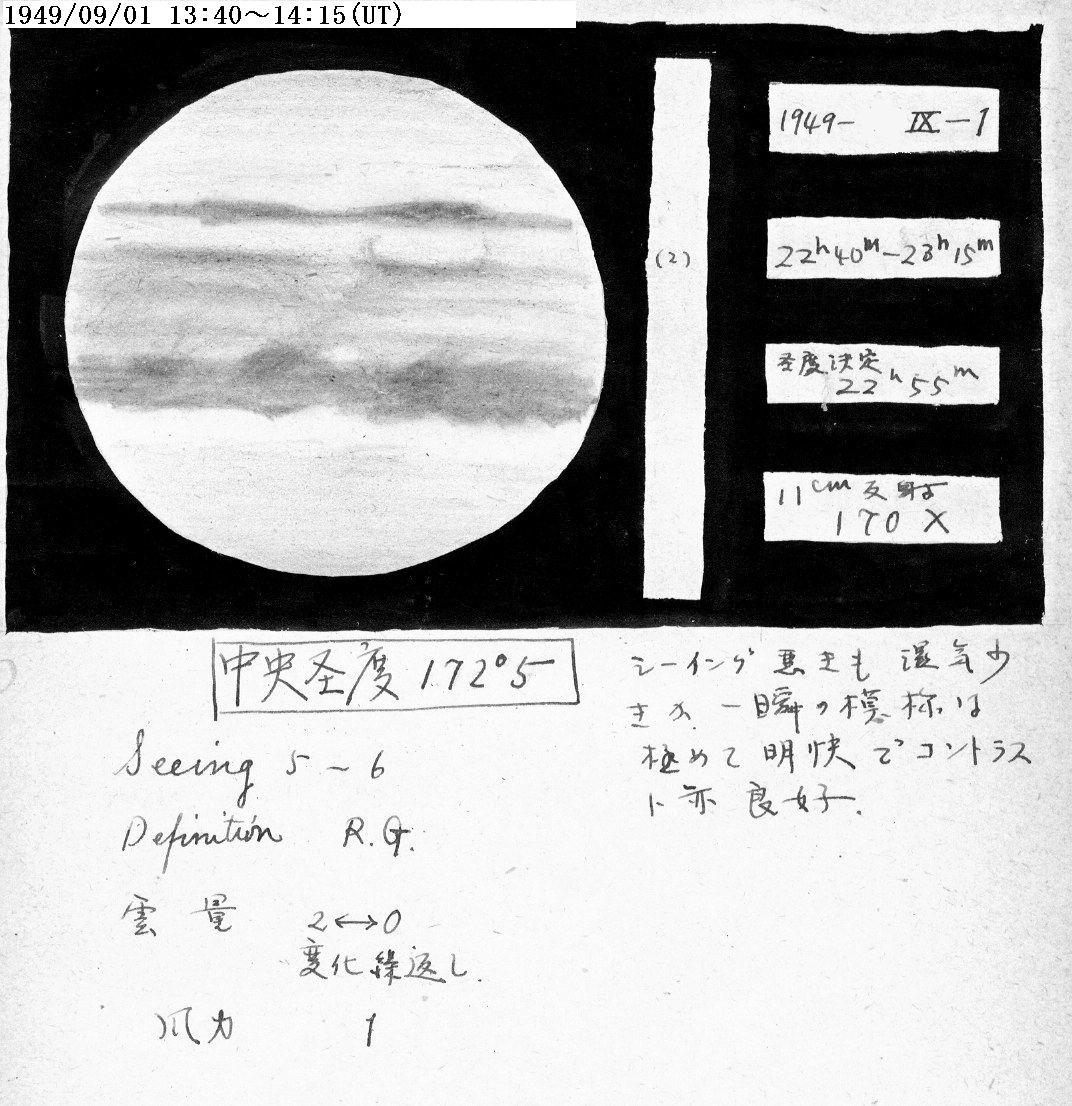 1949/09/01 13:40～14:15(UT)
1949- IX-1
(2)
22h40m-23h15m
圣度決定
22h55m
11cm反射
170×
中央圣度 172°5
シーイング悪きも湿気少
きか一瞬の模様は
極めて明快でコントラス
ト亦良好.
Seeing 5~6
Definition R.G.
雲量 2↔0
変化繰返し.
風力 1